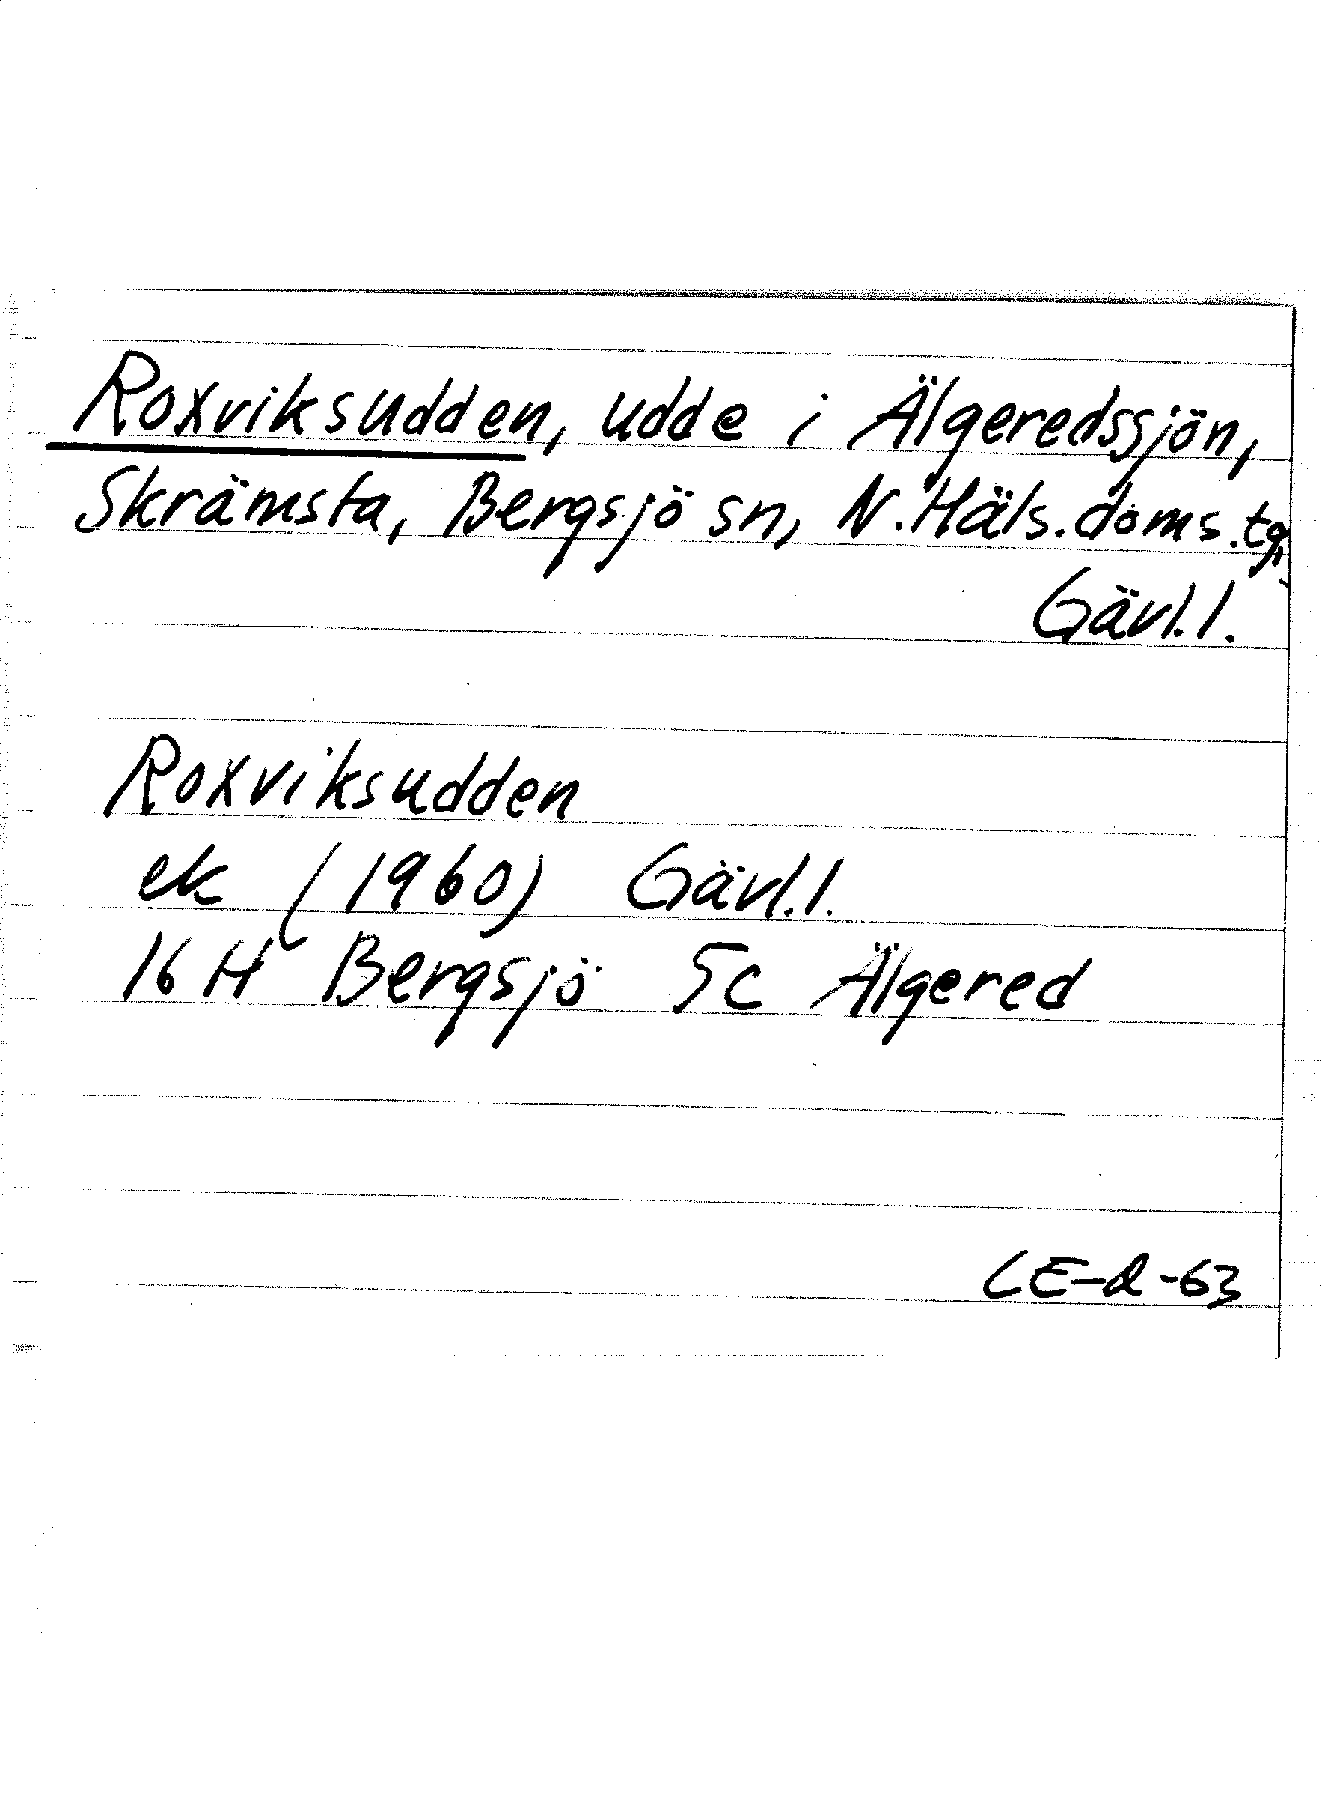 Roxviksudden, udde i Älgeredssjön,
Skrämsta, Bergsjö sn, N.Häls.doms.tg,
Gävl.l.
Roxviksudden
ek (1960) Gävl.l.
16 H Bergsjö 5c Älgered
LE-d-63